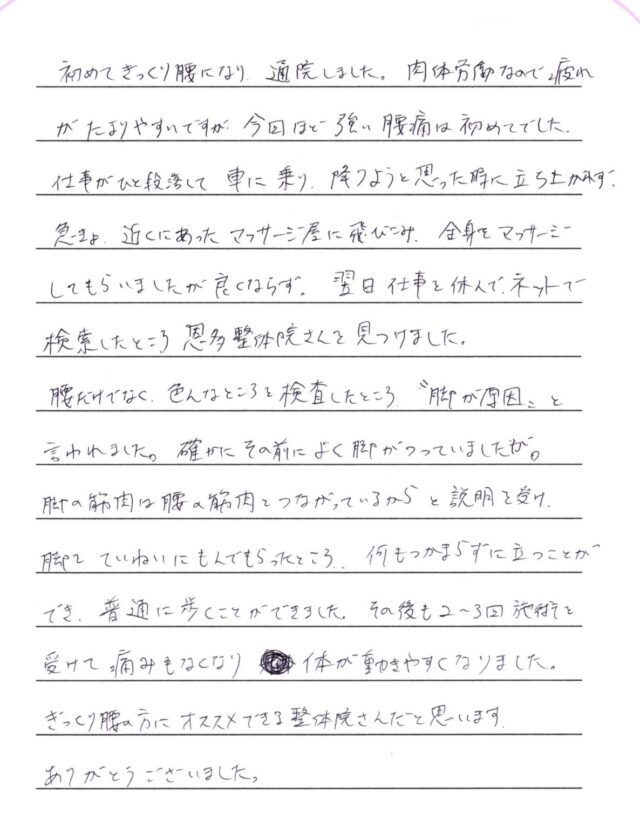 初めてぎっくり腰になり、通院しました。肉体労働なので、疲れ
がたまりやすいですが、今回ほど強い腰痛は初めてでした。
仕事がひと段落して車に乗り、降りようと思った時に立ち上がれず、
急きょ、近くにあったマッサージ屋に飛びこみ、全身をマッサージ
してもらいましたが良くならず。翌日仕事を休んで、ネットで
検索したところ恩多整体院さんを見つけました。
腰だけでなく、色んなところを検査したところ、〝脚が原因〟と
言われました。確かにその前によく脚がつっていましたが。
脚の筋肉は腰の筋肉とつながっているからと説明を受け、
脚をていねいにもんでもらったところ、何もつかまらずに立つことが
でき、普通に歩くことができました。その後も2〜3回施術を
受けて痛みもなくなり 体が動きやすくなりました。
ぎっくり腰の方にオススメできる整体院さんだと思います。
ありがとうございました。